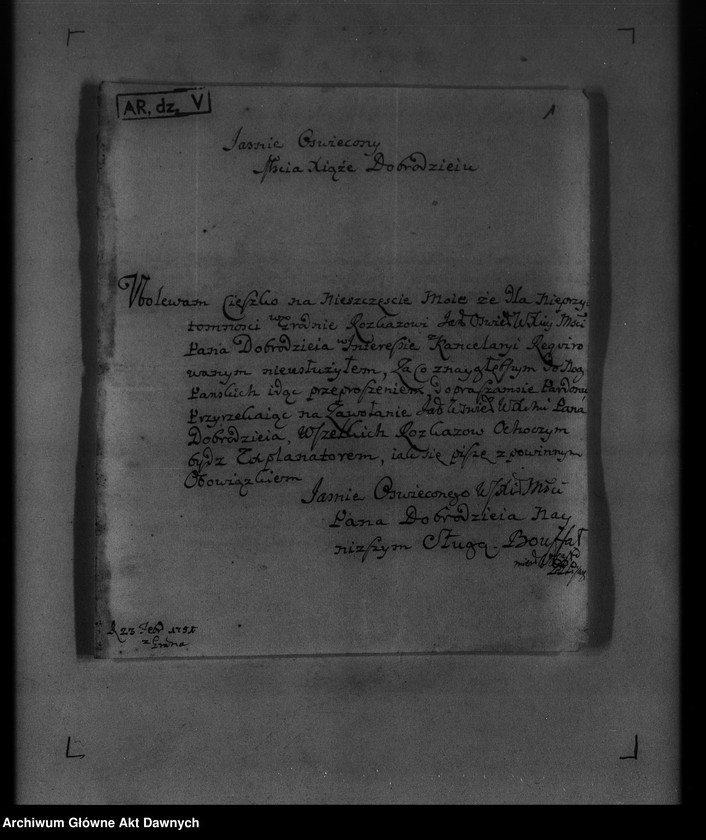 AR. dz. V
1
Jasnie Oswiecony
Mscia Xiąże Dobrodzieiu
Ubolewam Cięszko na Nieszczęscie Moie że dla Nieprzy
tomnosci w Grodnie Rozkazowi Jaś Oświć WXiuy Mści
Pana Dobrodzieia w Interessie Kancelaryi Reqviro
wanym nieusłużyłem, Za co znaygłębszym do Nog
Panskich idąc przeproszeniem, dopraszamsie Pardonu
Przyrzekaiąc na Zawołanie Pana
Dobrodzieia, Wszelkich Rozkazow Ochoczym
bydz Explanatorem, iako się piszę z powinnym
Obowiązkiem
Jasnie Oswieconego WXć Mści
Pana Dobrodzieia Nay
nizszym Sługą. Bouffał
D 23 Febr 1755
z Grodna
Archiwum Główne Akt Dawnych